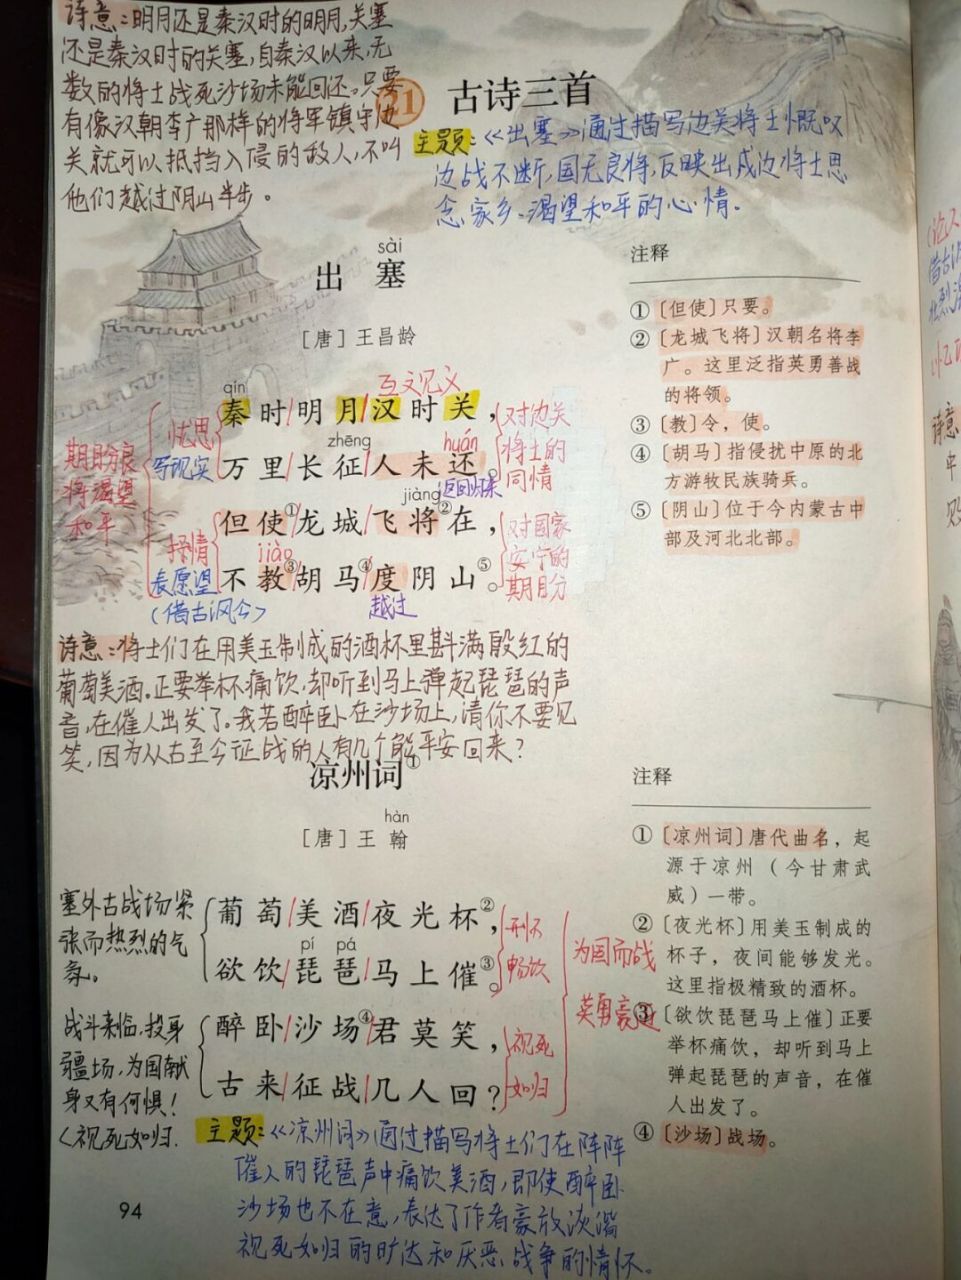 诗意:明月还是秦汉时的明月,关塞
还是秦汉时的关塞,自秦汉以来,无
数的将士战死沙场未能回还。只要
有像汉朝李广那样的将军镇守边
关就可以抵挡入侵的敌人,不叫
他们越过阴山半步。
21 古诗三首
主题:《出塞》通过描写边关将士慨叹
边战不断,国无良将,反映出戍边将士思
念家乡、渴望和平的心情.
sài
出塞
[唐]王昌龄
互文见义
qín
秦时/明月/汉时关,
zhēng huán
万里/长征/人未还。
返回归来
jiàng
但使①/龙城/飞将②在,
jiào
不教③/胡马④/度阴山⑤。
越过
忧思
写现实
抒情
表愿望
(借古讽今)
期盼良
将渴望
和平
对边关
将士的
同情
对国家
安宁的
期盼
注释
①〔但使〕只要。
②〔龙城飞将〕汉朝名将李
广。这里泛指英勇善战
的将领。
③〔教〕令,使。
④〔胡马〕指侵扰中原的北
方游牧民族骑兵。
⑤〔阴山〕位于今内蒙古中
部及河北北部。
诗意:将士们在用美玉制成的酒杯里斟满殷红的
葡萄美酒.正要举杯痛饮,却听到马上弹起琵琶的声
音,在催人出发了。我若醉卧在沙场上,请你不要见
笑,因为从古至今征战的人有几个能平安回来?
凉州词①
hàn
[唐]王翰
葡萄/美酒/夜光杯②,
pí pá
欲饮/琵琶/马上催③。
醉卧/沙场④/君莫笑,
古来/征战/几人回?
塞外古战场紧
张而热烈的气
氛。
战斗来临,投身
疆场,为国献
身又有何惧!
<视死如归.
开怀
畅饮
视死
如归
为国而战
英勇豪迈
注释
①〔凉州词〕唐代曲名,起
源于凉州(今甘肃武
威)一带。
②〔夜光杯〕用美玉制成的
杯子,夜间能够发光。
这里指极精致的酒杯。
③〔欲饮琵琶马上催〕正要
举杯痛饮,却听到马上
弹起琵琶的声音,在催
人出发了。
④〔沙场〕战场。
主题:《凉州词》通过描写将士们在阵阵
催人的琵琶声中痛饮美酒,即使醉卧
沙场也不在意,表达了作者豪放
视死如归的旷达和厌恶战争的情怀。
94